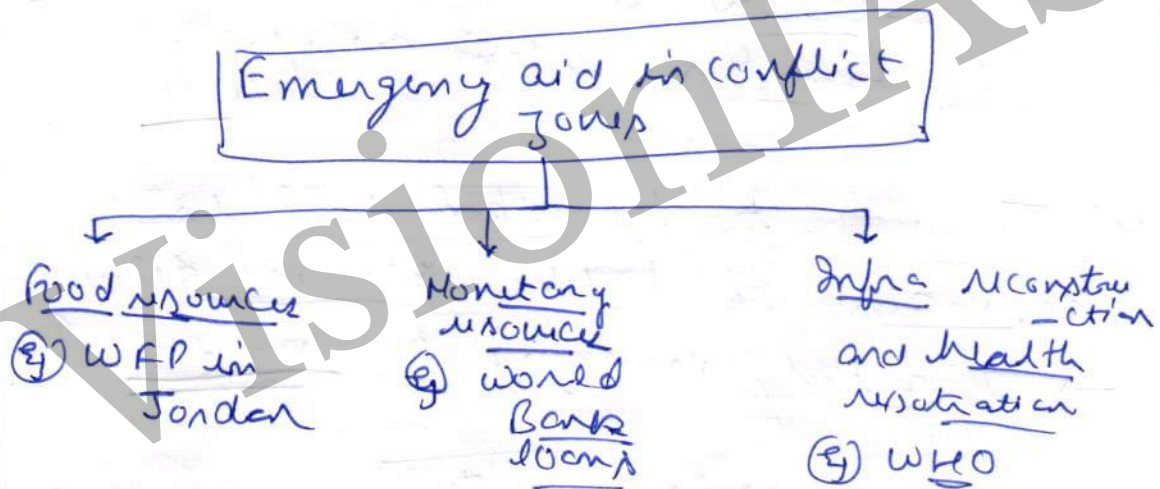 Emergency aid in conflict
zones
Food resources
Eg WFP in
Jordan
Monetary
resources
Eg World
Bank
loans
Infra reconstru
-ction
and health
restoration
Eg WHO
VisionIAS